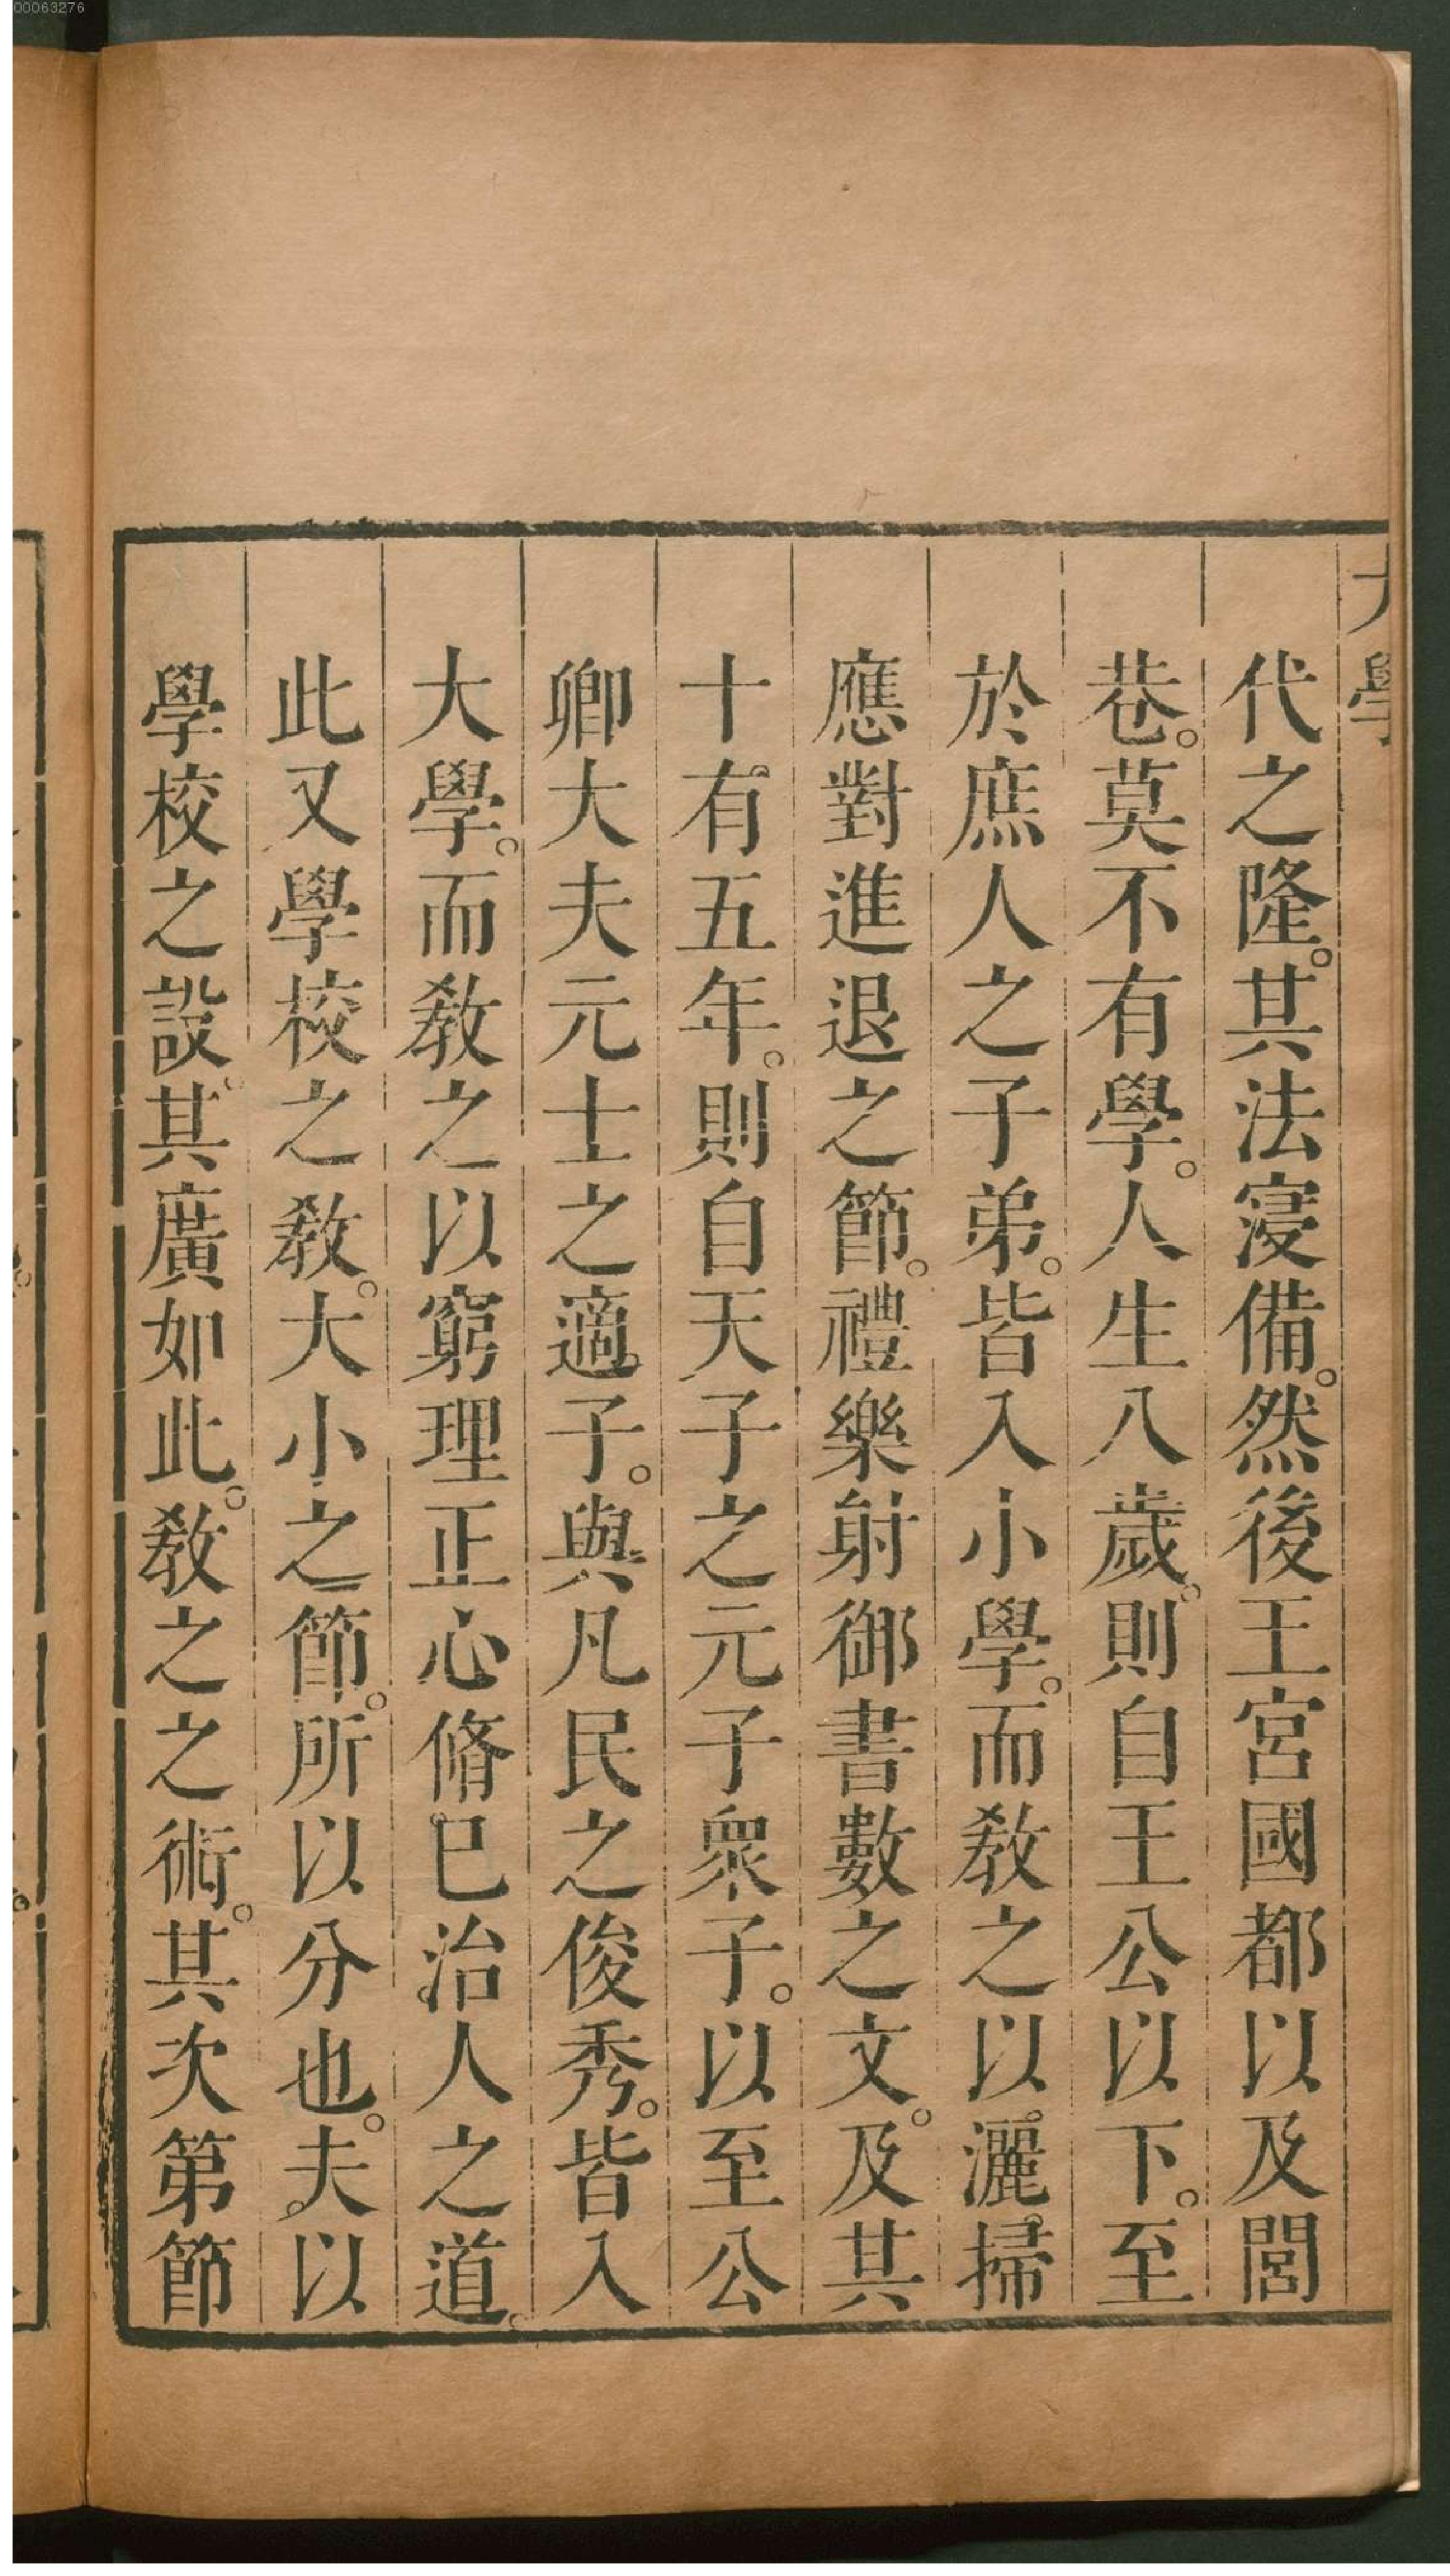 00063276
大學
代之隆。其法寖備。然後王宮國都以及閭
巷。莫不有學。人生八歲。則自王公以下。至
於庶人之子弟。皆入小學。而敎之以灑掃
應對進退之節。禮樂射御書數之文。及其
十有五年。則自天子之元子衆子。以至公
卿大夫元士之適子。與凡民之俊秀。皆入
大學。而敎之以窮理正心脩已治人之道。
此又學校之敎。大小之節。所以分也。夫以
學校之設。其廣如此。敎之之術。其次第節